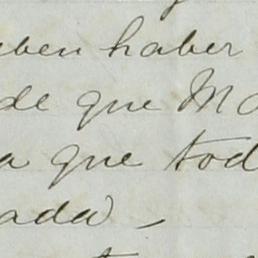 eben haber
de que Ma
a que tod
ada –